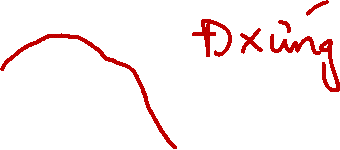 Đxứng